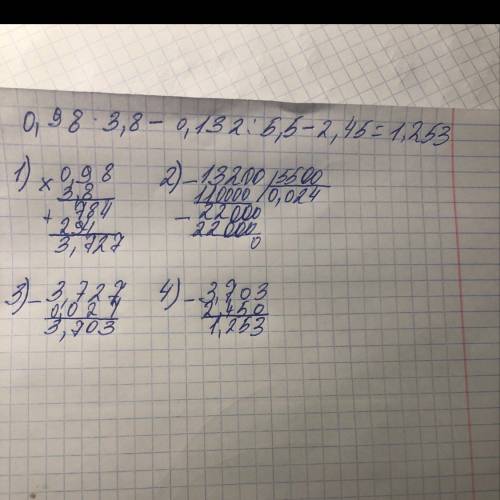 0,98 · 3,8 - 0,132 : 5,5 - 2,45 = 1,253
1) × 0,98
3,8
+ 784
294
3,727
2) - 13200 | 5500
110000 | 0,024
- 22000
22000
0
3) - 3,727
0,024
3,703
4) - 3,703
2,450
1,253